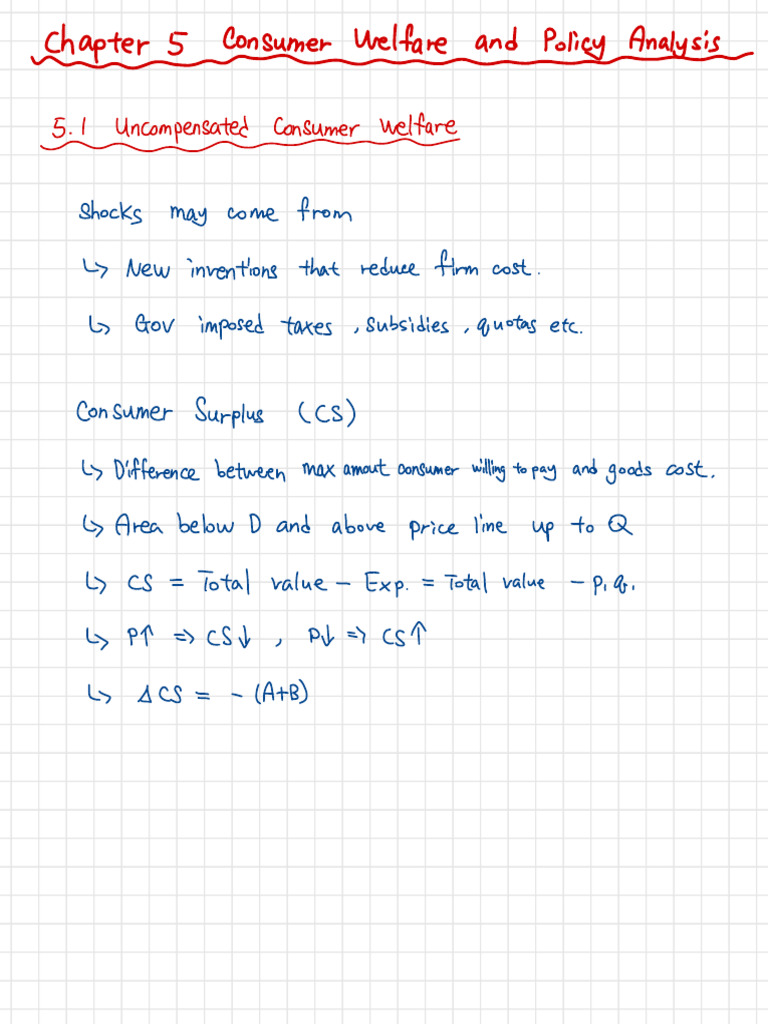 Chapter 5 Consumer Welfare and Policy Analysis
5.1 Uncompensated Consumer Welfare
Shocks may come from
↳ New inventions that reduce firm cost.
↳ Gov imposed taxes, subsidies, quotas etc.
Consumer Surplus (CS)
↳ Difference between max amout consumer willing to pay and goods cost.
↳ Area below D and above price line up to Q
↳ CS = Total value - Exp. = Total value - P₁ q₁.
↳ P↑ => CS↓, P↓ => CS↑
↳ ΔCS = - (A+B)